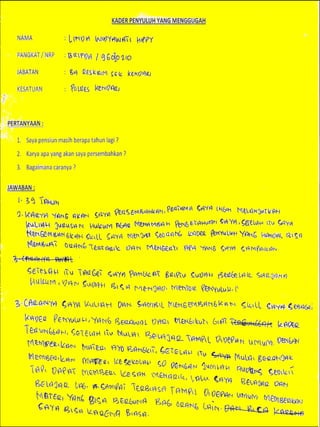 KADER PENYULUH YANG MENGGUGAH
NAMA : LINDA WIDYAWATI HAPPY
PANGKAT / NRP : BRIPDA / 96090210
JABATAN : BA RESKRIM SEK KENDARI
KESATUAN : POLRES KENDARI
PERTANYAAN :
1. Saya pensiun masih berapa tahun lagi ?
2. Karya apa yang akan saya persembahkan ?
3. Bagaimana caranya ?
JAWABAN :
1. 39 TAHUN
2. KARYA YANG AKAN SAYA PERSEMBAHKAN, PERTAMA SAYA INGIN MELANJUTKAN
KULIAH JURUSAN HUKUM AGAR MENAMBAH PENGETAHUAN SAYA, SETELAH ITU SAYA
MENGEMBANGKAN SKILL SAYA MENJADI SEORANG KADER PENYULUH YANG HANDAL BISA
MEMBUAT ORANG TERTARIK DAN MENGERTI APA YANG SAYA SAMPAIKAN.
SETELAH ITU TARGET SAYA PANGKAT BRIPTU SUDAH BERGELAR SARJANA
HUKUM, DAN SUDAH BISA MENJADI MENTOR PENYULUH.
3. CARANYA SAYA KULIAH DAN SAMBIL MENGEMBANGKAN SKILL SAYA SEBAGAI
KADER PENYULUH, YANG BERAWAL DARI MENGIKUTI GIAT KADER
TERUNGGAN, SETELAH ITU MULAI BELAJAR TAMPIL DIDEPAN UMUM DENGAN
MEMBERIKAN MATERI AYO BANGKIT, SETELAH ITU SAYA MULAI BERANJAK
MEMBERIKAN MATERI KE SEKOLAH SD DENGAN JUMLAH AUDIENS SEDIKIT
TAPI DAPAT MEMBERI KESAN MENARIK, LALU SAYA BELAJAR DAN
BELAJAR LAGI SAMPAI TERBIASA TAMPIL DIDEPAN UMUM MEMBERIKAN
MATERI YANG BISA BERGUNA BAGI ORANG LAIN. DAN BISA KARENA
SAYA BISA KARENA BIASA.